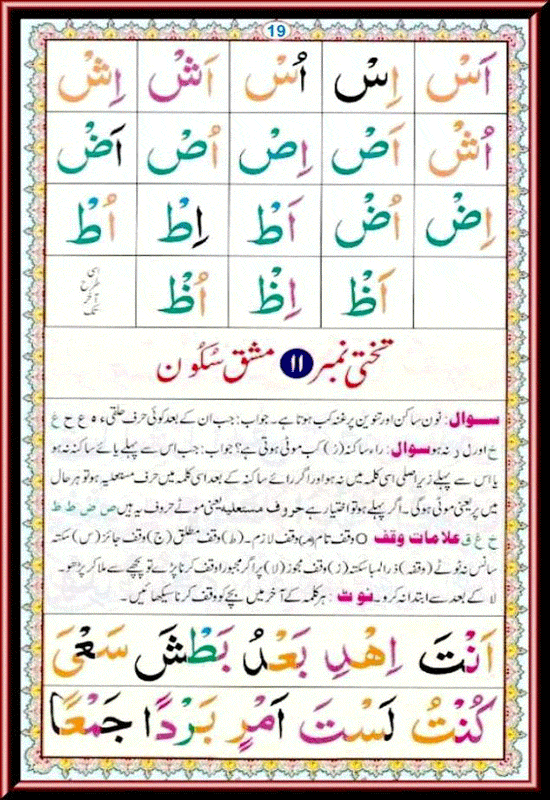 19
اَسْ اِسْ اُسْ اَشْ اِشْ
اُشْ اَصْ اِصْ اُصْ اَضْ
اِضْ اُضْ اَطْ اِطْ اُطْ
اَظْ اِظْ اُظْ اسی طرح آخر تک
تختی نمبر ۱۱ مشق سکون
سوال: نون ساکن اور تنوین پر غنہ کب ہوتا ہے۔ جواب: جب ان کے بعد کوئی حرف حلقی ء ہ ع ح غ
خ اور ل ر نہ ہو سوال: راء ساکنہ (رْ) کب موٹی ہوتی ہے؟ جواب: جب اس سے پہلے یائے ساکنہ نہ ہو
یا اس سے پہلے زیر اصلی اسی کلمہ میں نہ ہو اور اگر رائے ساکنہ کے بعد اسی کلمہ میں حرف مستعلیہ ہو تو ہر حال
میں پر یعنی موٹی ہوگی۔ اگر پہلے ہو تو اختیار ہے حروف مستعلیہ یعنی موٹے حروف یہ ہیں ص ض ط ظ
خ غ ق علامات وقف O وقف تام (م) وقف لازم۔ (ط) وقف مطلق (ج) وقف جائز (س) سکتہ
سانس نہ ٹوٹے (وقفہ) ذرا لمبا سکتہ (ز) وقف مجوز (لا) پر اگر مجبوراً وقف کرنا پڑے تو پیچھے سے ملا کر پڑھو۔
لا کے بعد سے ابتدا نہ کرو۔ نوٹ: ہر کلمہ کے آخر میں بچے کو وقف کرنا سیکھائیں۔
اَنْتَ اِهْدِ بَعْدُ بَطْشَ سَعْیَ
كُنْتُ لَسْتَ اَمْرٍ بَرْدًا جَمْعًا